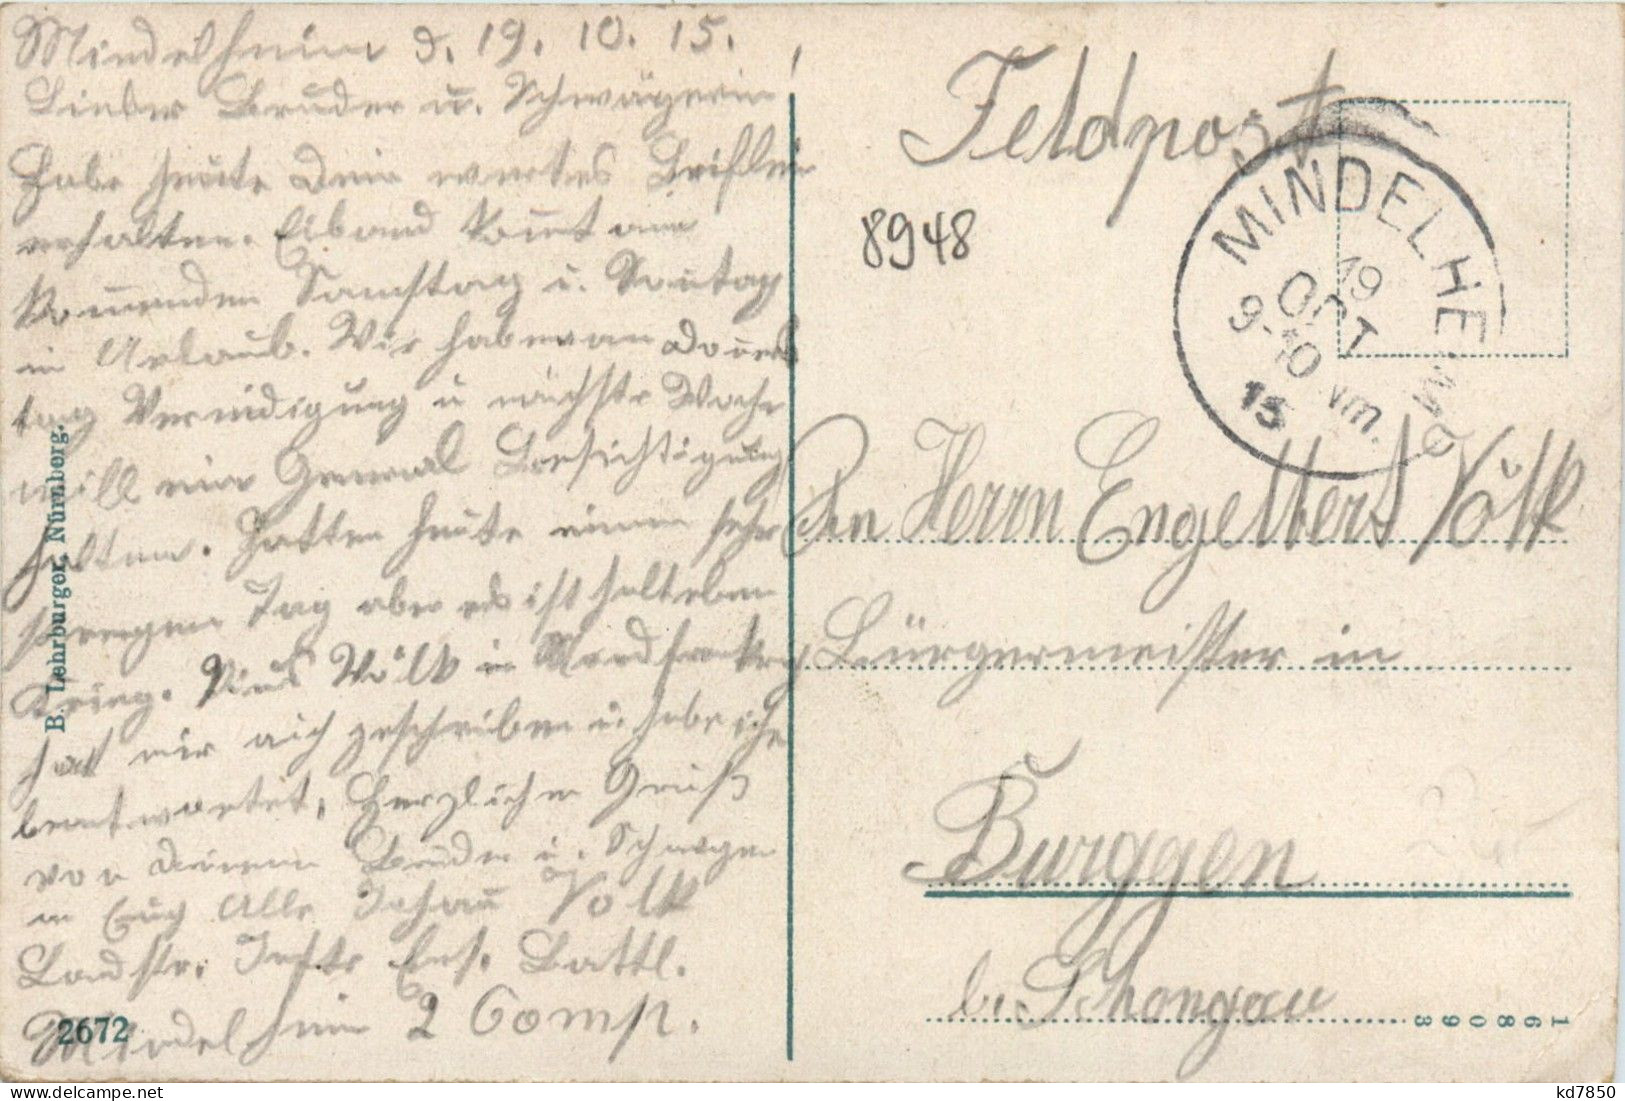 Mindelheim d. 19. 10. 15.
Lieber Bruder u. Schwägerin
Habe heute Dein wertes Brieflein
erhalten.
kommenden Samstag u. Sontag
in Urlaub. Wir haben am Doners
tag Vereidigung u nächste Woche
will ein General Besichtigung
halten. Hatten heute einen sehr
strengen Tag aber es ist halt eben
Krieg. Pius Völk in Nordfrankrg
hat mir auch geschrieben u. habe ihm
beantwortet, Herzlichen Gruß
von deinem Bruder u. Schwager
an Euch Alle Johann Völk
Landstr. Inftr Ers. Battl.
Mindelheim 2 Comp.
B. Lehrburger, Nürnberg.
2672
Feldpost
8948
MINDELHEIM
19
OKT
9-10 Vm.
15
An Herrn Engelbert Völk
Bürgermeister in
Burggen
b. Schongau
168093
kd7850